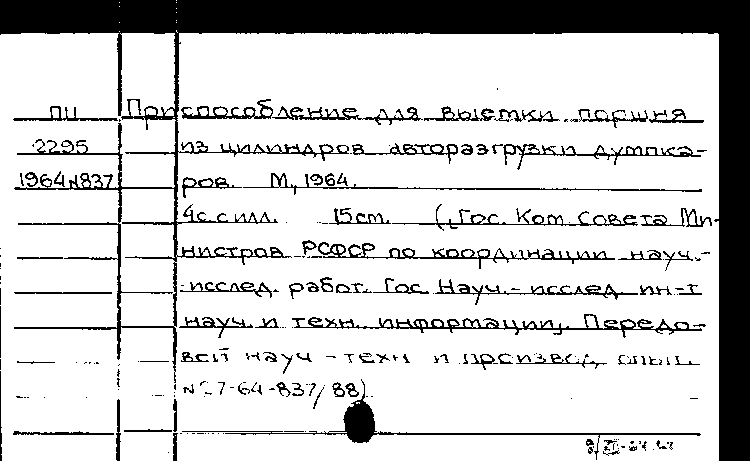 ПЦ Приспособление для выемки поршня
2295 из цилиндров авторазгрузки думпка-
1964 N837 ров. М, 1964.
4с с илл. 15 см. (Гос. Ком. Совета Ми-
нистров РСФСР по координации науч.-
-исслед. работ. Гос. Науч.- исслед. ин-т
науч. и техн. информации. Передо-
вой науч - техн и производ. опыт.
N 27-64-837/88)